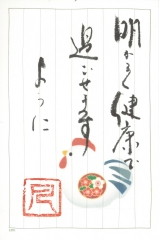 明かるく健康で
過ごせます
ように